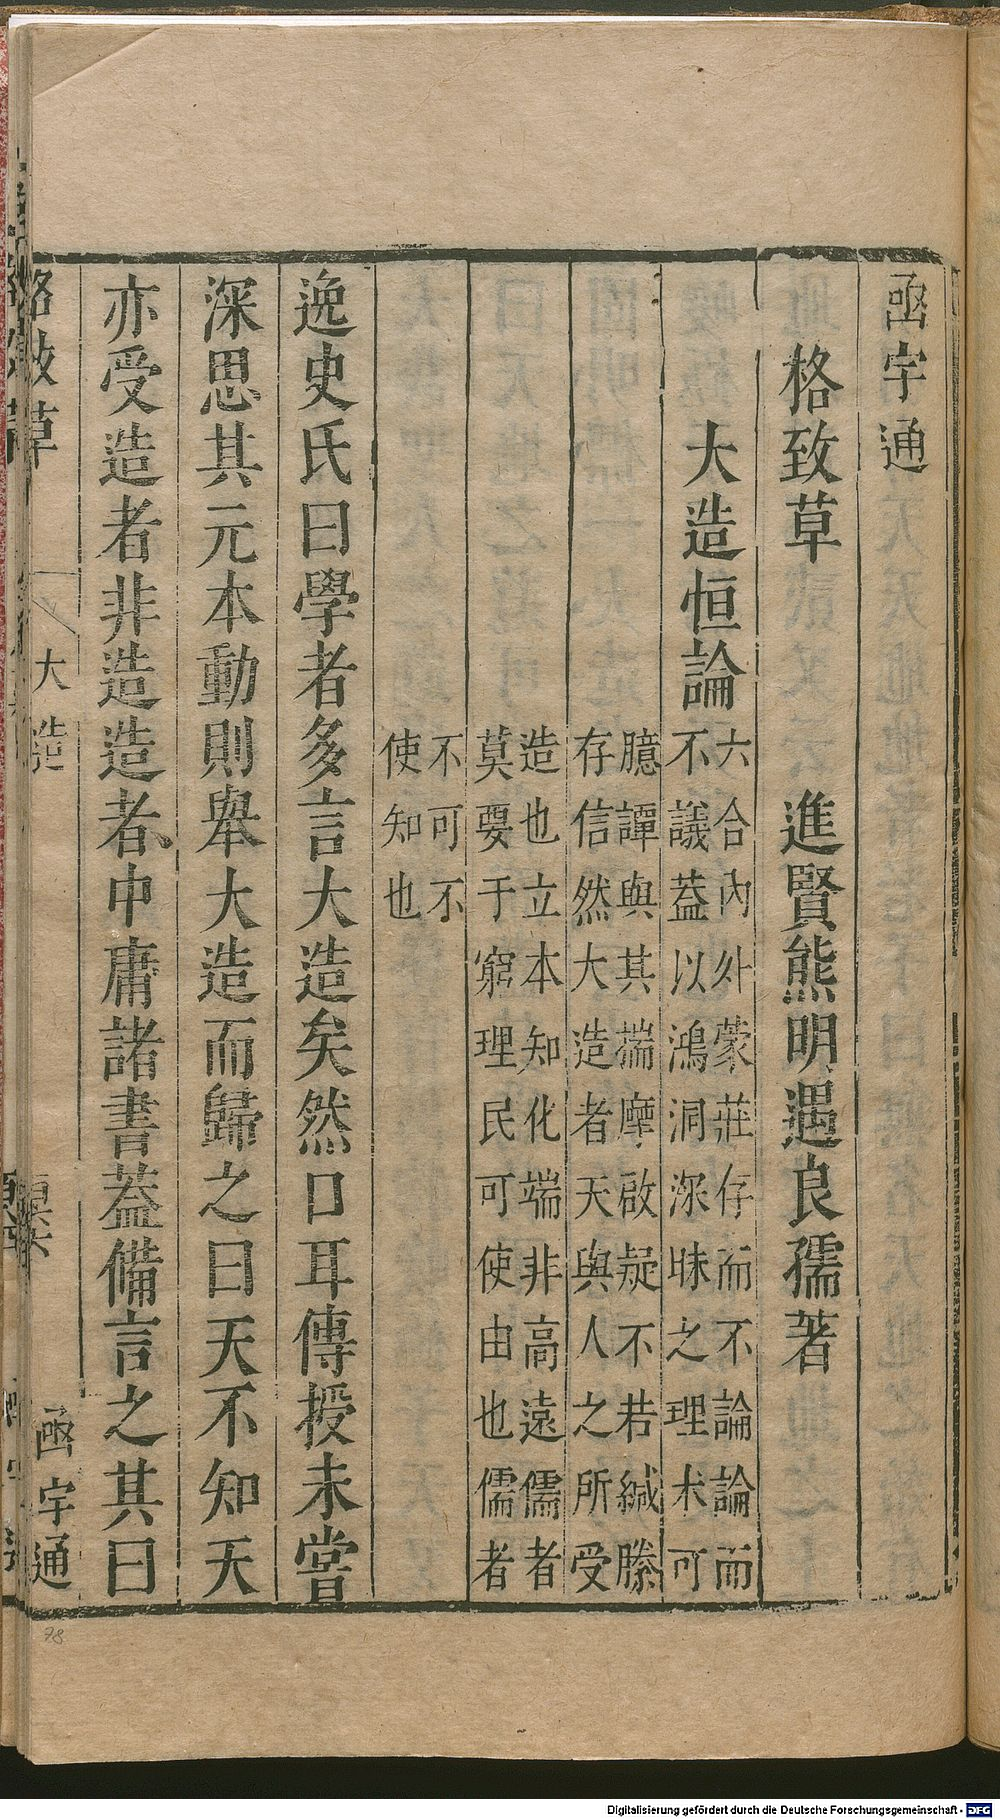 函宇通
格致草　進賢熊明遇良孺著
大造恒論
六合內外蒙莊存而不論論而
不議蓋以鴻洞深昧之理未可
臆譚與其揣摩啟疑不若緘縢
存信然大造者天與人之所受
造也立本知化端非高遠儒者
莫要于窮理民可使由也儒者
不可不
使知也
逸史氏曰學者多言大造矣然口耳傳授未嘗
深思其元本動則舉大造而歸之曰天不知天
亦受造者非造造者、中庸諸書蓋備言之其曰
格致草 大造 函宇通
78
Digitalisierung gefördert durch die Deutsche Forschungsgemeinschaft - DFG